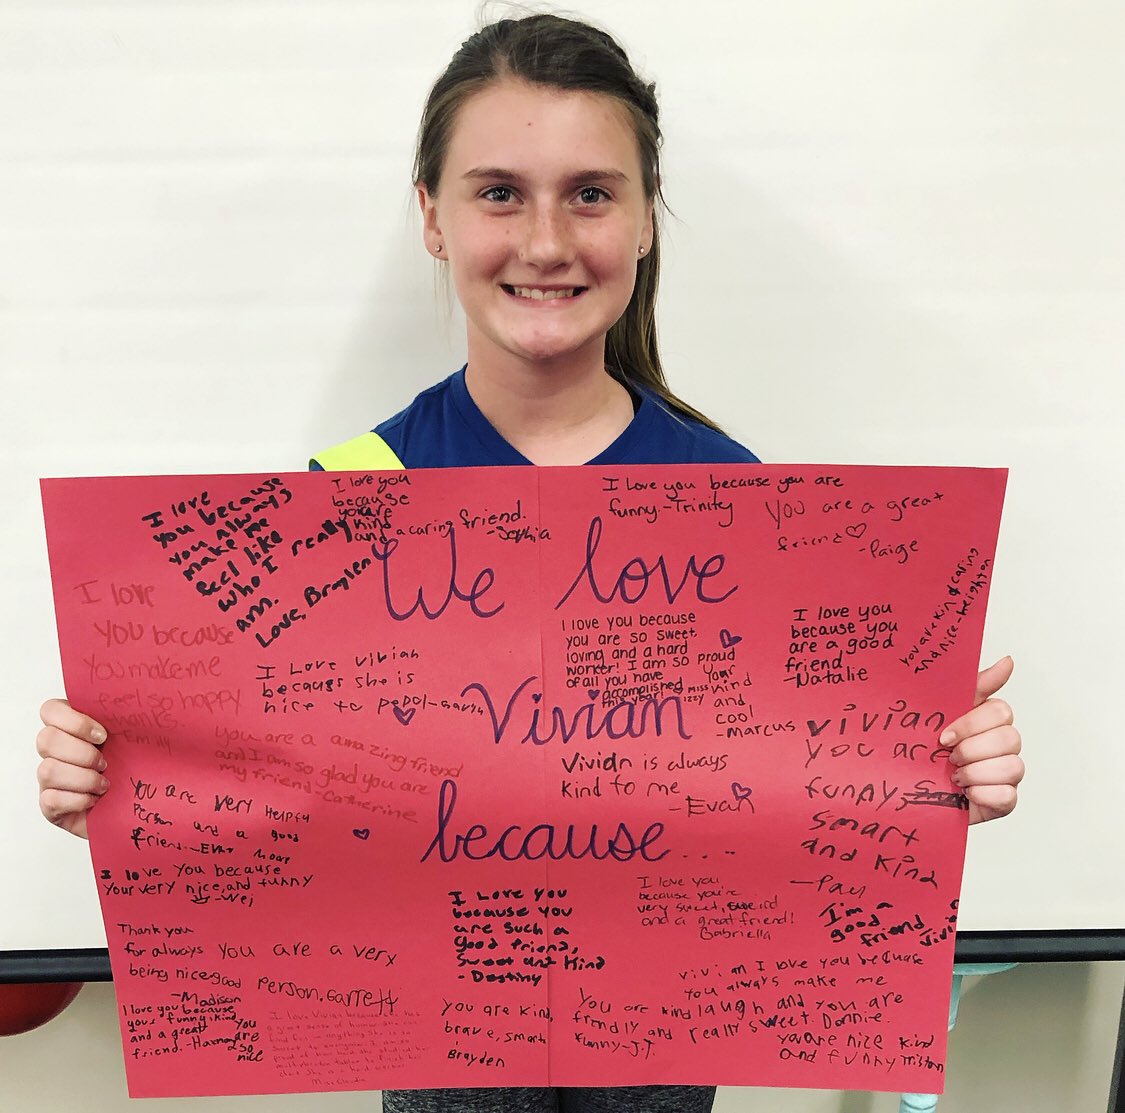 We love
Vivian
because...
I love
you because
you always
make me
feel like
who I really
am.
Love, Braylen
I love you
because
you're
kind
and a caring friend.
-Sophia
I love you because you are
funny.-Trinity
You are a great
friend
-Paige
you are kind & caring
and nice-
I love
you because
You make me
feel so happy
thanks.
-Emily
I Love vivian
because she is
nice to pepol-Gavin
I love you because
you are so sweet,
loving and a hard
worker! I am so proud
of all you have
accomplished
this year! Miss
Izzy
Your
kind
and
cool
-Marcus
I love you
because you
are a good
friend
-Natalie
You are a amazing friend
and I am so glad you are
my friend-Catherine
Vivian is always
kind to me
-Evan
vivian
you are
funny,
smart
and kind
You are very Helpful
Person and a good
friend.-Evan
I love You because
your very nice, and funny
I Love you
because you
are such a
good friend,
Sweet and Kind
-Destiny
I love you
because you're
very sweet,
and a great friend!
Gabriella
I'm a
good
friend
Vivian
Thank you
for always
being nice
-Madison
You are a very
good Person. Garrett
I love you because
your funny, kind
and a great
friend.-Harmony
You
are
so
nice
I love Vivian because she has
a great sense of humor.
Miss Claudia
you are kind,
brave, smart
Brayden
You are kind
friendly and
funny-J.T.
vivian I love you because
you always make me
laugh and you are
really sweet. Donnie.
you are nice kind
and funny Tristan